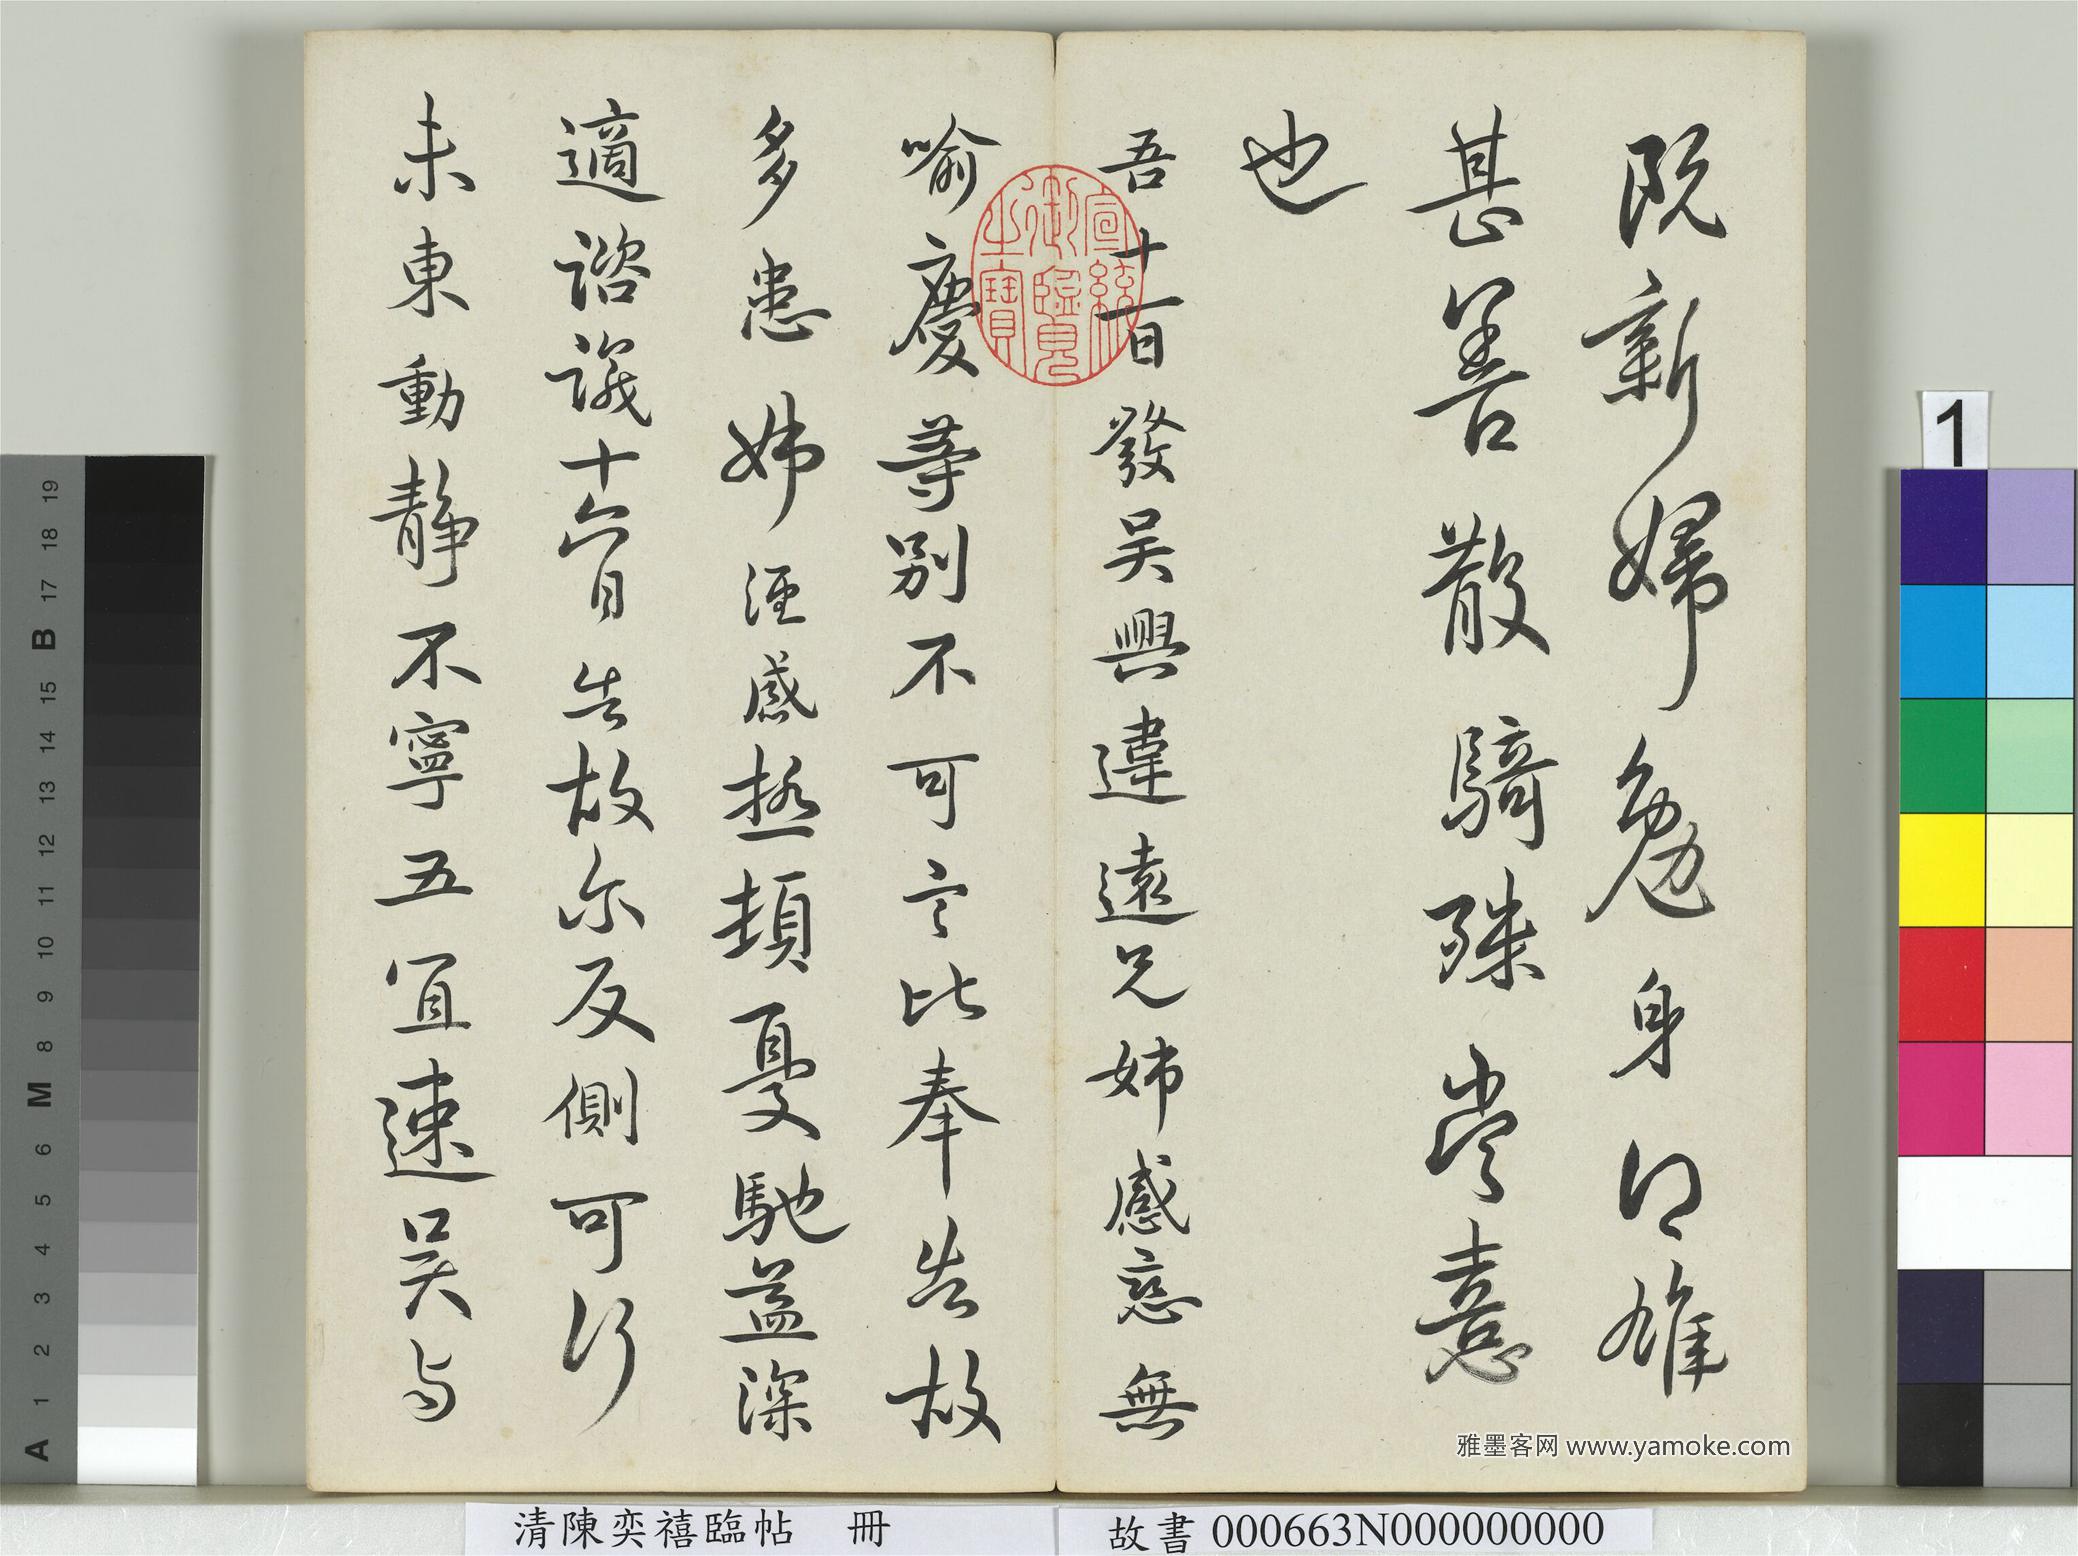 既新婦勉身得雄
甚善散騎殊當憙
也
吾十一日發吳興違遠兄姊感慈無
喻慶等別不可言比奉告故
多患姊經感極頓憂馳益深
適諮議十六日告故爾反側可行
未東動靜不寧五宜速吳与
宣統御覽之寶
雅墨客网 www.yamoke.com
清陳奕禧臨帖 冊
故書 000663N000000000
1
A 1 2 3 4 5 6 M 8 9 10 11 12 13 14 15 B 17 18 19